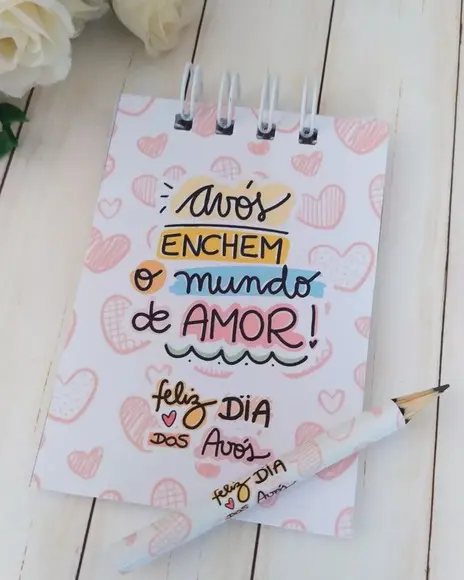 avós
ENCHEM
o mundo
de AMOR!
feliz DIA
DOS Avós
feliz DIA
DOS Avós